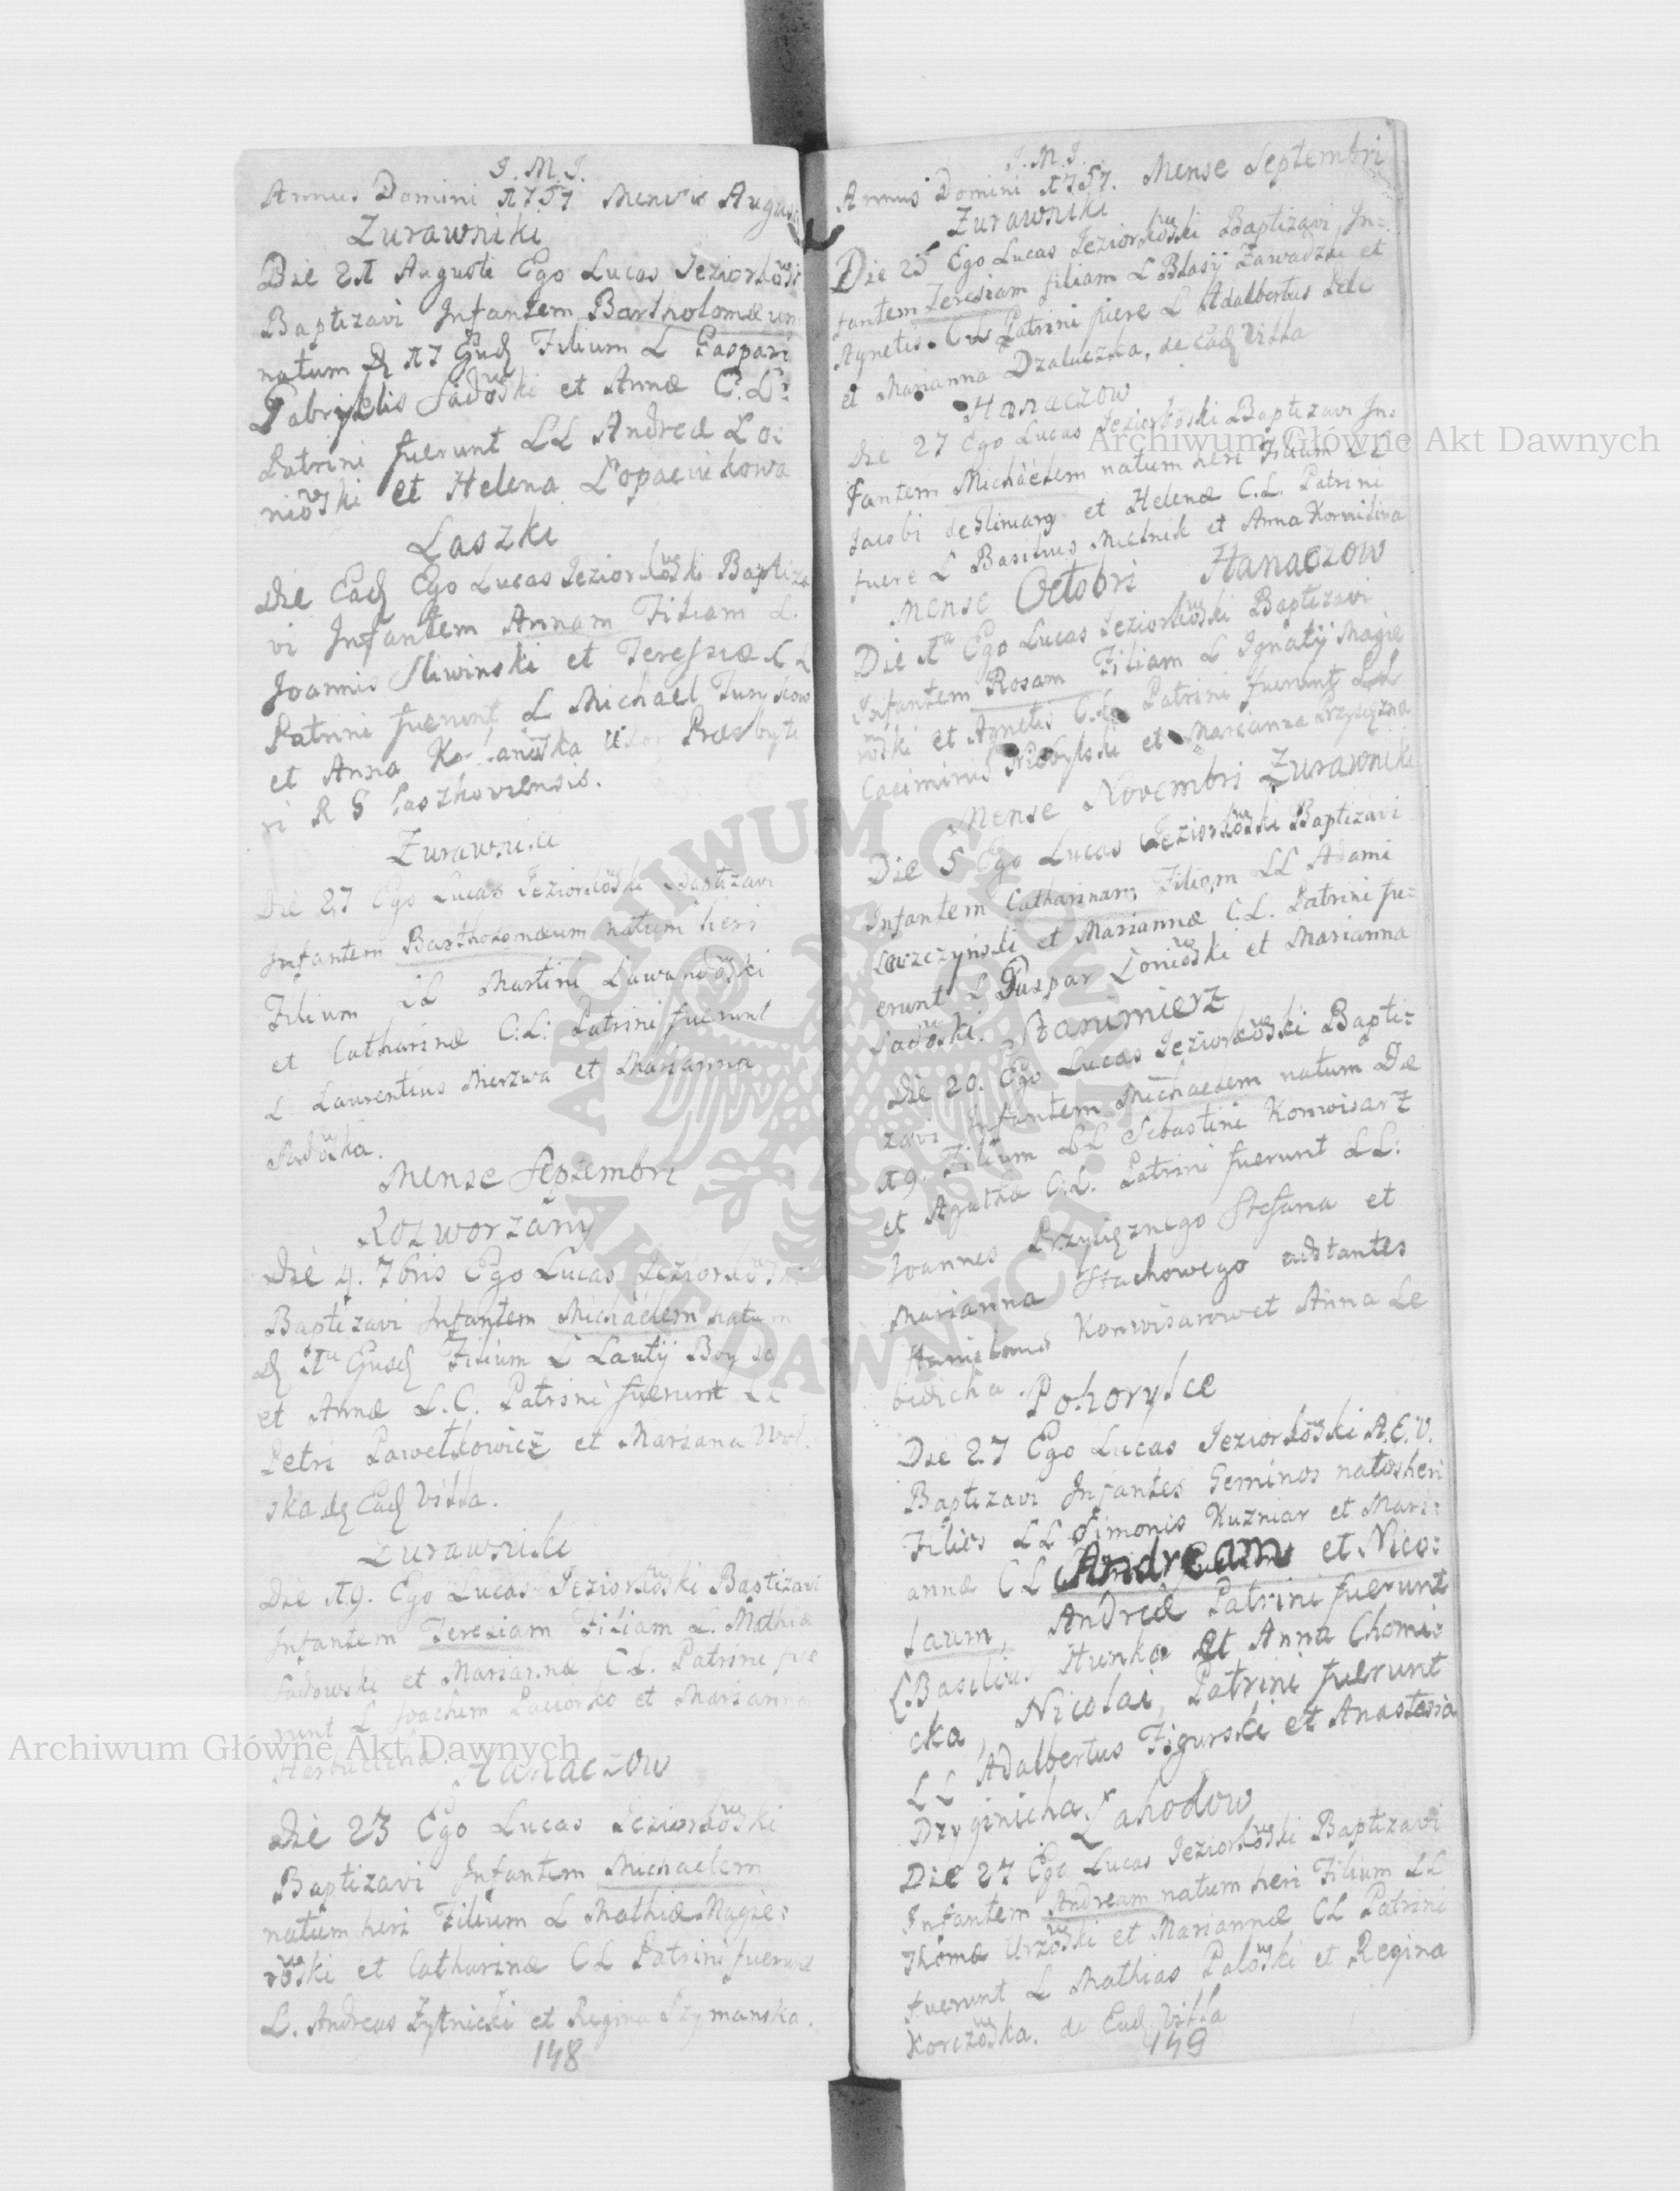 J. M. J.
Annus Domini 1757 Mensis Augusti
Zurawniki
Die 21 Augusti Ego Lucas Jeziorkowski
Baptizavi Infantem Bartholomæum
natum D 17 Eusd Filium L Gaspari
Gabryelis Sadowski et Annæ C. L.
Patrini fuerunt LL Andreæ Loi
niowski et Helena Lopacinkowa
Laszki
Die Ead Ego Lucas Jeziorkowski Baptiza
vi Infantem Annam Filiam L.
Joannis Sliwinski et Teresiæ C L
Patrini fuerunt L Michael
et Anna Uxor Presbyte
ri R G Laszkoviensis.
Zurawniki
Die 27 Ego Lucas Jeziorkowski Baptizavi
Infantem Bartholomæum natum heri
Filium LL Martini Lawandowski
et Catharinæ C: L: Patrini fuerunt
L Laurentius Mierzwa et Marianna
Sadowska.
Mense Septembri
Rozworzany
Die 4. 7bris Ego Lucas Jeziorkowski
Baptizavi Infantem Michäelem natum
d 1a Eusd Filium L Boyko
et Annæ L. C. Patrini fuerunt LL
Petri Pawełkowicz et Mariana
ska de Ead Villa.
Zurawniki
Die 19. Ego Lucas Jeziorkowski Baptizavi
Infantem Teresiam Filiam L. Mathiæ
Sadowski et Mariannæ C L. Patrini fue
runt L Joachim et Marianna
Hanaczow
Die 23 Ego Lucas Jeziorkowski
Baptizavi Infantem Michaelem
natum heri Filium L Mathiæ Magie:
rowski et Catharinæ C L Patrini fuerunt
L. Andreas Zytnicki et Regina Szymanska.
148
J. M. J.
Annus Domini 1757. Mense Septembri
Zurawniki
Die 25 Ego Lucas Jeziorkowski Baptizavi In=
fantem Teresiam filiam L Blasij Zawadzki et
Agnetis C L Patrini fuere L Adalbertus
et Marianna Dzaluczka, de Ead Villa
Hanaczow
Die 27 Ego Lucas Jeziorkowski Baptizavi In:
fantem Michäelem natum heri Filium LL
Jacobi de Gliniany et Helenæ C. L. Patrini
fuere L Basilius Mielnik et Anna
Mense Octobri Hanaczow
Die 1a Ego Lucas Jeziorkowski Baptizavi
Infantem Rosam Filiam L Ignatij Magie
rowski et Agnetis C. L. Patrini fuerunt LL
Casimirus et Marianna
Mense Novembri Zurawniki
Die 5 Ego Lucas Jeziorkowski Baptizavi
Infantem Catharinam Filiam LL Adami
et Mariannæ C. L. Patrini fu=
erunt L Gaspar Loniowski et Marianna
Sadowski. Stanimierz
Die 20. Ego Lucas Jeziorkowski Bapti:
zavi Infantem Michaelem natum Die
19. Filium LL Sebastini Konwisarz
et Agatha C. L. Patrini fuerunt LL:
Joannes Przysięznego Stefana et
Marianna Stachowego adstantes
Stanislaus Konwisarow et Anna Le
bidicha. Pohorylce
Die 27 Ego Lucas Jeziorkowski A. E. V.
Baptizavi Infantes Geminos natos heri
Filios LL Simonis Kuzniar et Mari:
annæ C L Andream et Nico:
laum, Andreæ Patrini fuerunt
L Basilius Hunka et Anna Chomic
cka, Nicolai, Patrini fuerunt
L L Adalbertus Figurski et Anastasia
Dzyginicha. Lahodow
Die 27 Ego Lucas Jeziorkowski Baptizavi
Infantem Andream natum heri Filium LL
Thomæ Urzowski et Mariannæ CL Patrini
fuerunt L Mathias Palowski et Regina
Korczowska. de Ead Villa
149
Archiwum Główne Akt Dawnych
Archiwum Główne Akt Dawnych
ARCHIWUM GŁÓWNE AKT DAWNYCH